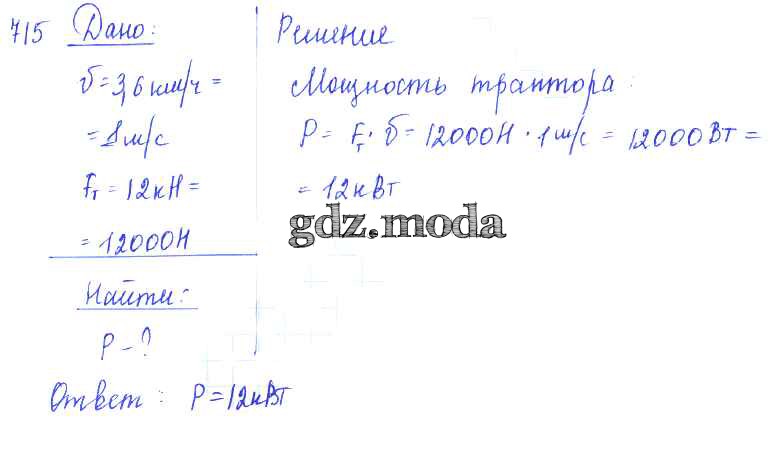 715 Дано:
υ = 3,6 км/ч =
= 1 м/с
Fт = 12 кН =
= 12000 Н
Найти:
P - ?
Решение
Мощность трактора:
P = Fт · υ = 12000 Н · 1 м/с = 12000 Вт =
= 12 кВт
gdz.moda
Ответ: P = 12 кВт